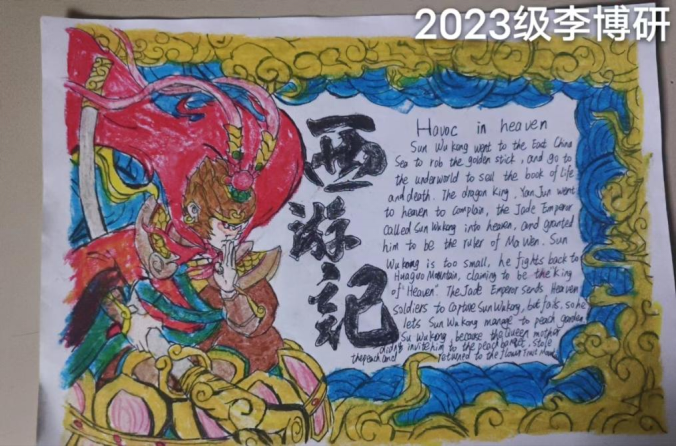 2023级李博研
西游记
Havoc in heaven
Sun Wu kong went to the East China
Sea to rob the golden stick, and go to
the underworld to soil the book of life
and death. The dragon king, Yan Jun went
to heaven to complain, the Jade Emperor
called Sun Wukong into heaven, and granted
him to be the ruler of Ma Wen. Sun
Wukong is too small, he fights back to
Huaguo Mountain, claiming to be the "king
of Heaven". The Jade Emperor sends Heaven
soldiers to capture Sun Wukong, but fails, so he
lets Sun Wukong manage to peach garden
Su Wukong, because the queen mother
didn't invite him to the peach banquet, stole
the peach and returned to the Flower Fruit